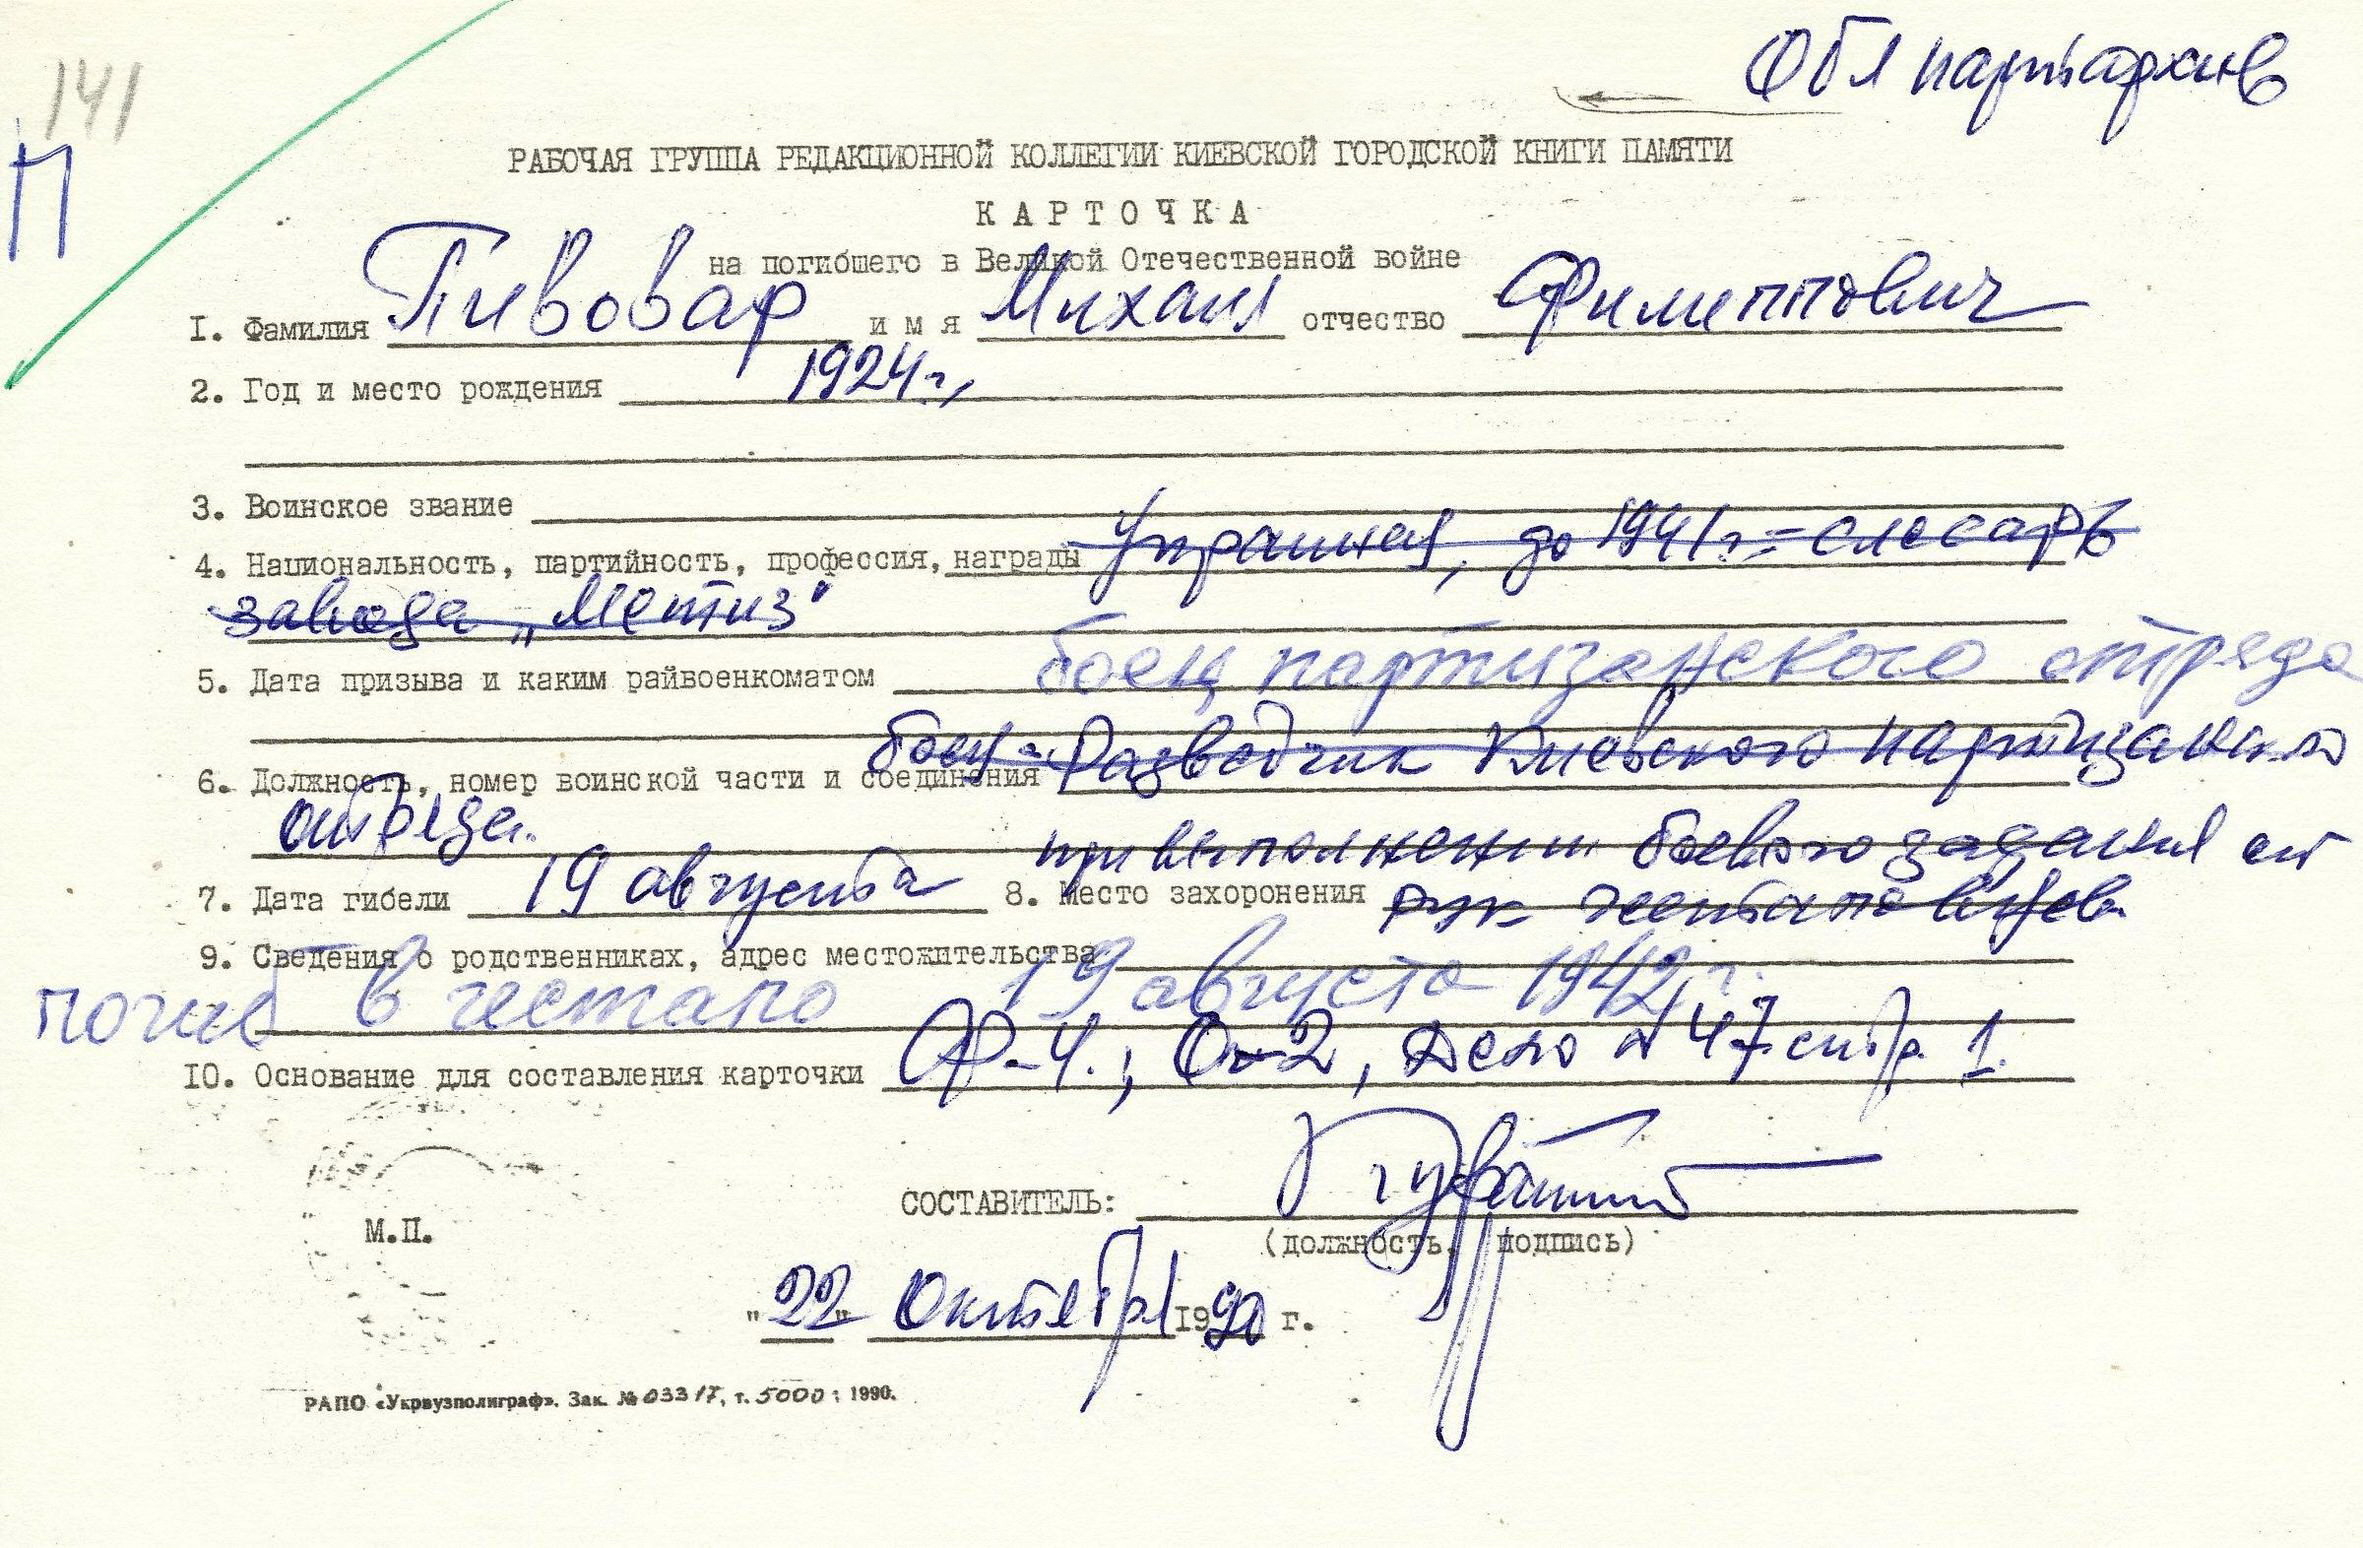 Обл партархив
141
П
РАБОЧАЯ ГРУППА РЕДАКЦИОННОЙ КОЛЛЕГИИ КИЕВСКОЙ ГОРОДСКОЙ КНИГИ ПАМЯТИ
КАРТОЧКА
на погибшего в Великой Отечественной войне
I. Фамилия Пивовар имя Михаил отчество Филиппович
2. Год и место рождения 1924г.,
3. Воинское звание
4. Национальность, партийность, профессия, награды Украинец, до 1941г. - слесарь
завода „Метиз"
5. Дата призыва и каким райвоенкоматом боец партизанского отряда
6. Должность, номер воинской части и соединения боец-разведчик Киевского партизанского
отряда.
при выполнении боевого задания от
7. Дата гибели 19 августа 8. Место захоронения рук гестаповцев.
9. Сведения о родственниках, адрес местожительства 19 августа 1942 г.
погиб в гестапо
10. Основание для составления карточки Ф-4., О-2, дело № 47 стр. 1.
СОСТАВИТЕЛЬ:
(должность, подпись)
М.П.
"22" Октября 1990 г.
РАПО «Укрвузполиграф». Зак. № 03317, т. 5000; 1990.